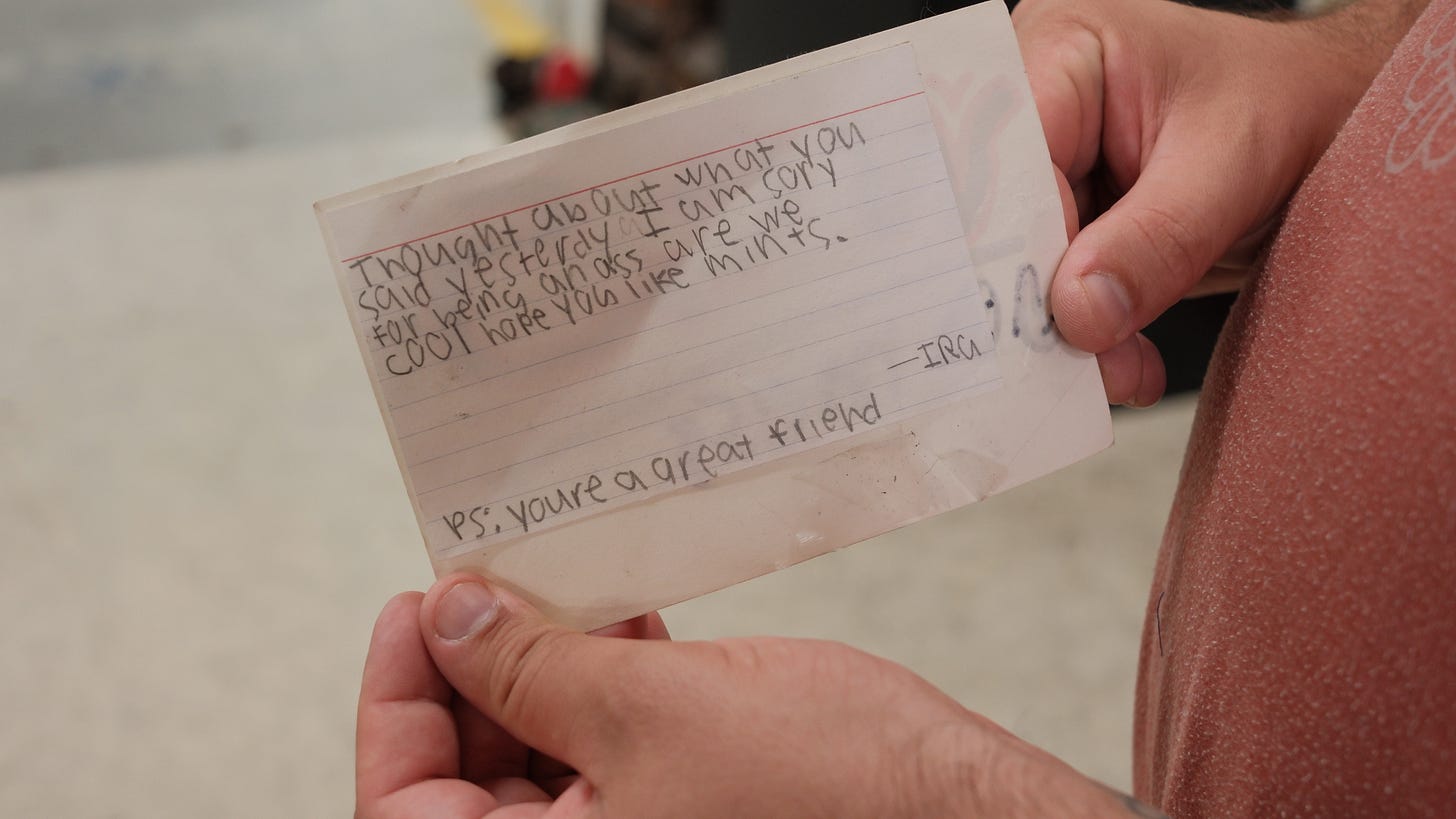 I Thought about what you
said yesterdy I am sory
for being an ass are we
cool hope you like mints.
—IRA
PS: youre a great friend